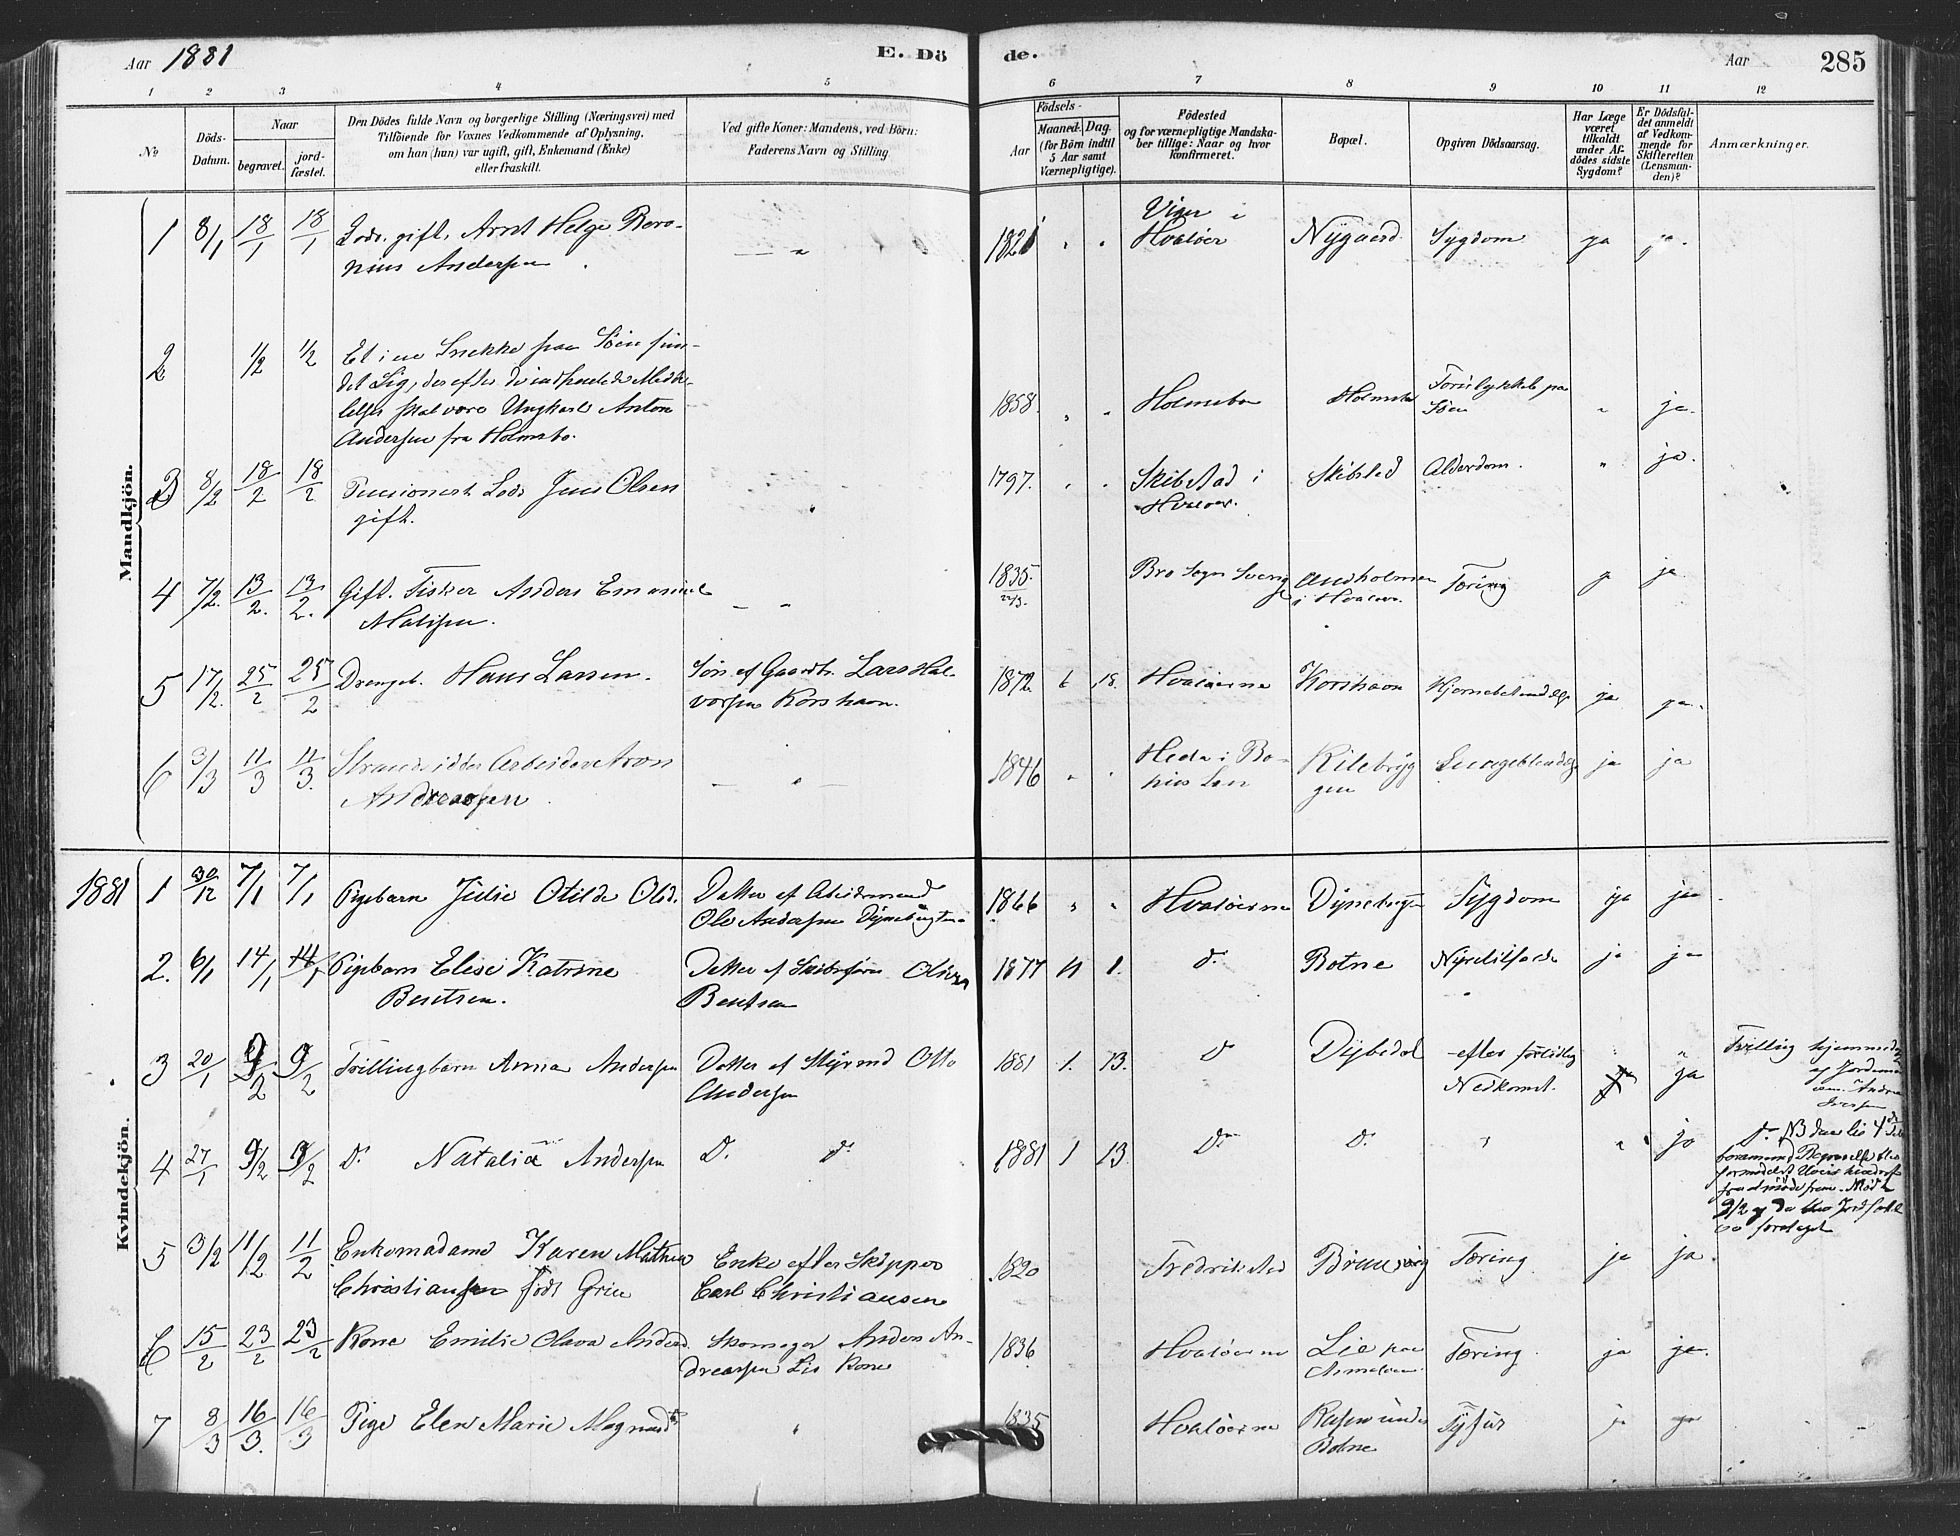 Aar 1881
E. Dö
de.
Aar
285
1 2 3 4 5 6 7 8 9 10 11 12
№
Döds-Datum.
Naar
begravet.
jord-fæstet.
Den Dödes fulde Navn og borgerlige Stilling (Næringsvei) med
Tilföiende for Voxnes Vedkommende af Oplysning,
om han (hun) var ugift, gift, Enkemand (Enke)
eller fraskilt.
Ved gifte Koner: Mandens, ved Börn:
Faderens Navn og Stilling
Födsels-
Aar
Maaned. Dag.
(for Börn indtil
5 Aar samt
Værnepligtige).
Födested
og for værnepligtige Mandska-
ber tillige: Naar og hvor
konfirmeret.
Bopæl.
Opgiven Dödsaarsag.
Har Læge
været
tilkaldt
under Af-
dödes sidste
Sygdom?
Er Dödsfal-
det anmeldt
af Vedkom-
mende for
Skifteretten
(Lensman-
den)?
Anmærkninger.
Mandkjön.
1 8/1 18/1 18/1 Lods. gift. Arnt Helge Bero- — „ 1821 „ „ Viger i
nius Andersen Hvaløer Nygaard Sygdom ja ja.
2 1/2 1/2 Et i en Snekke paa Søen fun-
det Lig, der efter
skal være Ungkarl Anton 1858. „ „ Holmsbo Holmsbo paa Søen „ ja.
Andersen fra Holmsbo.
3 8/2 18/2 18/2 Pensioneret Lods Jens Olsen „ 1797. „ „ Skibstad i Skibsted Alderdom. „ ja.
gift. Hvaløer.
4 7/2. 13/2. 13/2. Gift. Fisker Anders Emanuel — „ 1835. Bro Sogn Sverige Tæring ja.
Matisen. 22/3. i Hvaløer.
5 17/2. 25/2 25/2 Drengeb. Hans Larsen. Søn af Gaardbr. Lars Hal- 1872. 6 18. Hvaløerne Korshavn Hjernebetændelse ja ja.
vorsen Korshavn.
6 3/3 11/3 11/3. Strandsidder Arbeider Aron — „ — 1846 „ „ Hede i Bo- Kilebryg Lungebetændelse ja ja
Andreassen hus Len gen
Kvindekjön.
1881 1 30/12 7/1 7/1 Pigebarn Julie Otilde Olsd. Datter af Arbeidsmand 1866 „ „ Hvaløerne Dynebugten Sygdom ja ja
Ole Andersen Dynebugten
2. 6/1 14/1 14/1 Pigebarn Elise Katrine Datter af Skibsfører Oliver 1877 11 1. d. Botne ja ja
Berntsen. Berntsen
3 20/1 9/2 9/2 Tvillingbarn Anna Andersen Datter af Styrmd Otto 1881 1. 13. d Dybedal efter for tidlig „ ja Tvilling hjemmedøbt
Andersen Nedkomst. af Jordemor
4 27/1 9/2 9/2 d. Natalia Andersen D. d. 1881 1 13. d. d. „ „ ja d. NB
9/2
foretaget
5 3/2 11/2 11/2 Enkemadame Karen Mathea Enke efter Skipper 1820 Fredrikstad Tæring ja ja.
Christiansen født Carl Christiansen
6 15/2 23/2 23/2 Kone Emilie Olava Andersd. Skomager Anders An- 1836 Hvaløerne Lie paa Tæring. ja ja.
dreassen Lie Kone
7 8/3 16/3. 16/3 Pige Elen Marie Magnusd. „ 1835 Hvaløerne under Tyfus ja
Botne